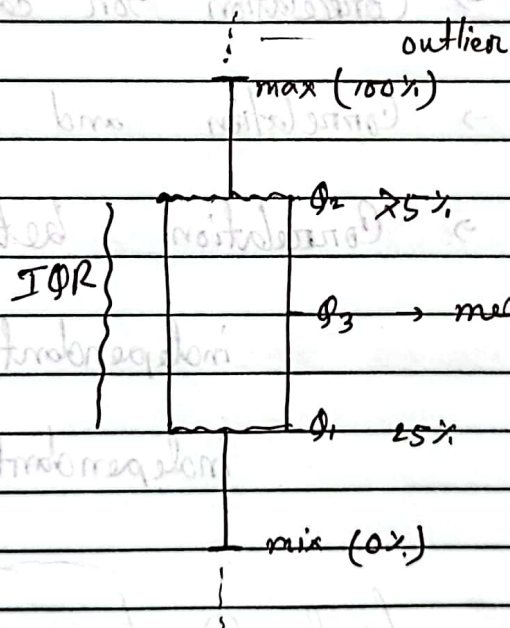 outlier
max (100%)
Q2 75%
IQR
Q3 → me
Q1 25%
mix (0%)